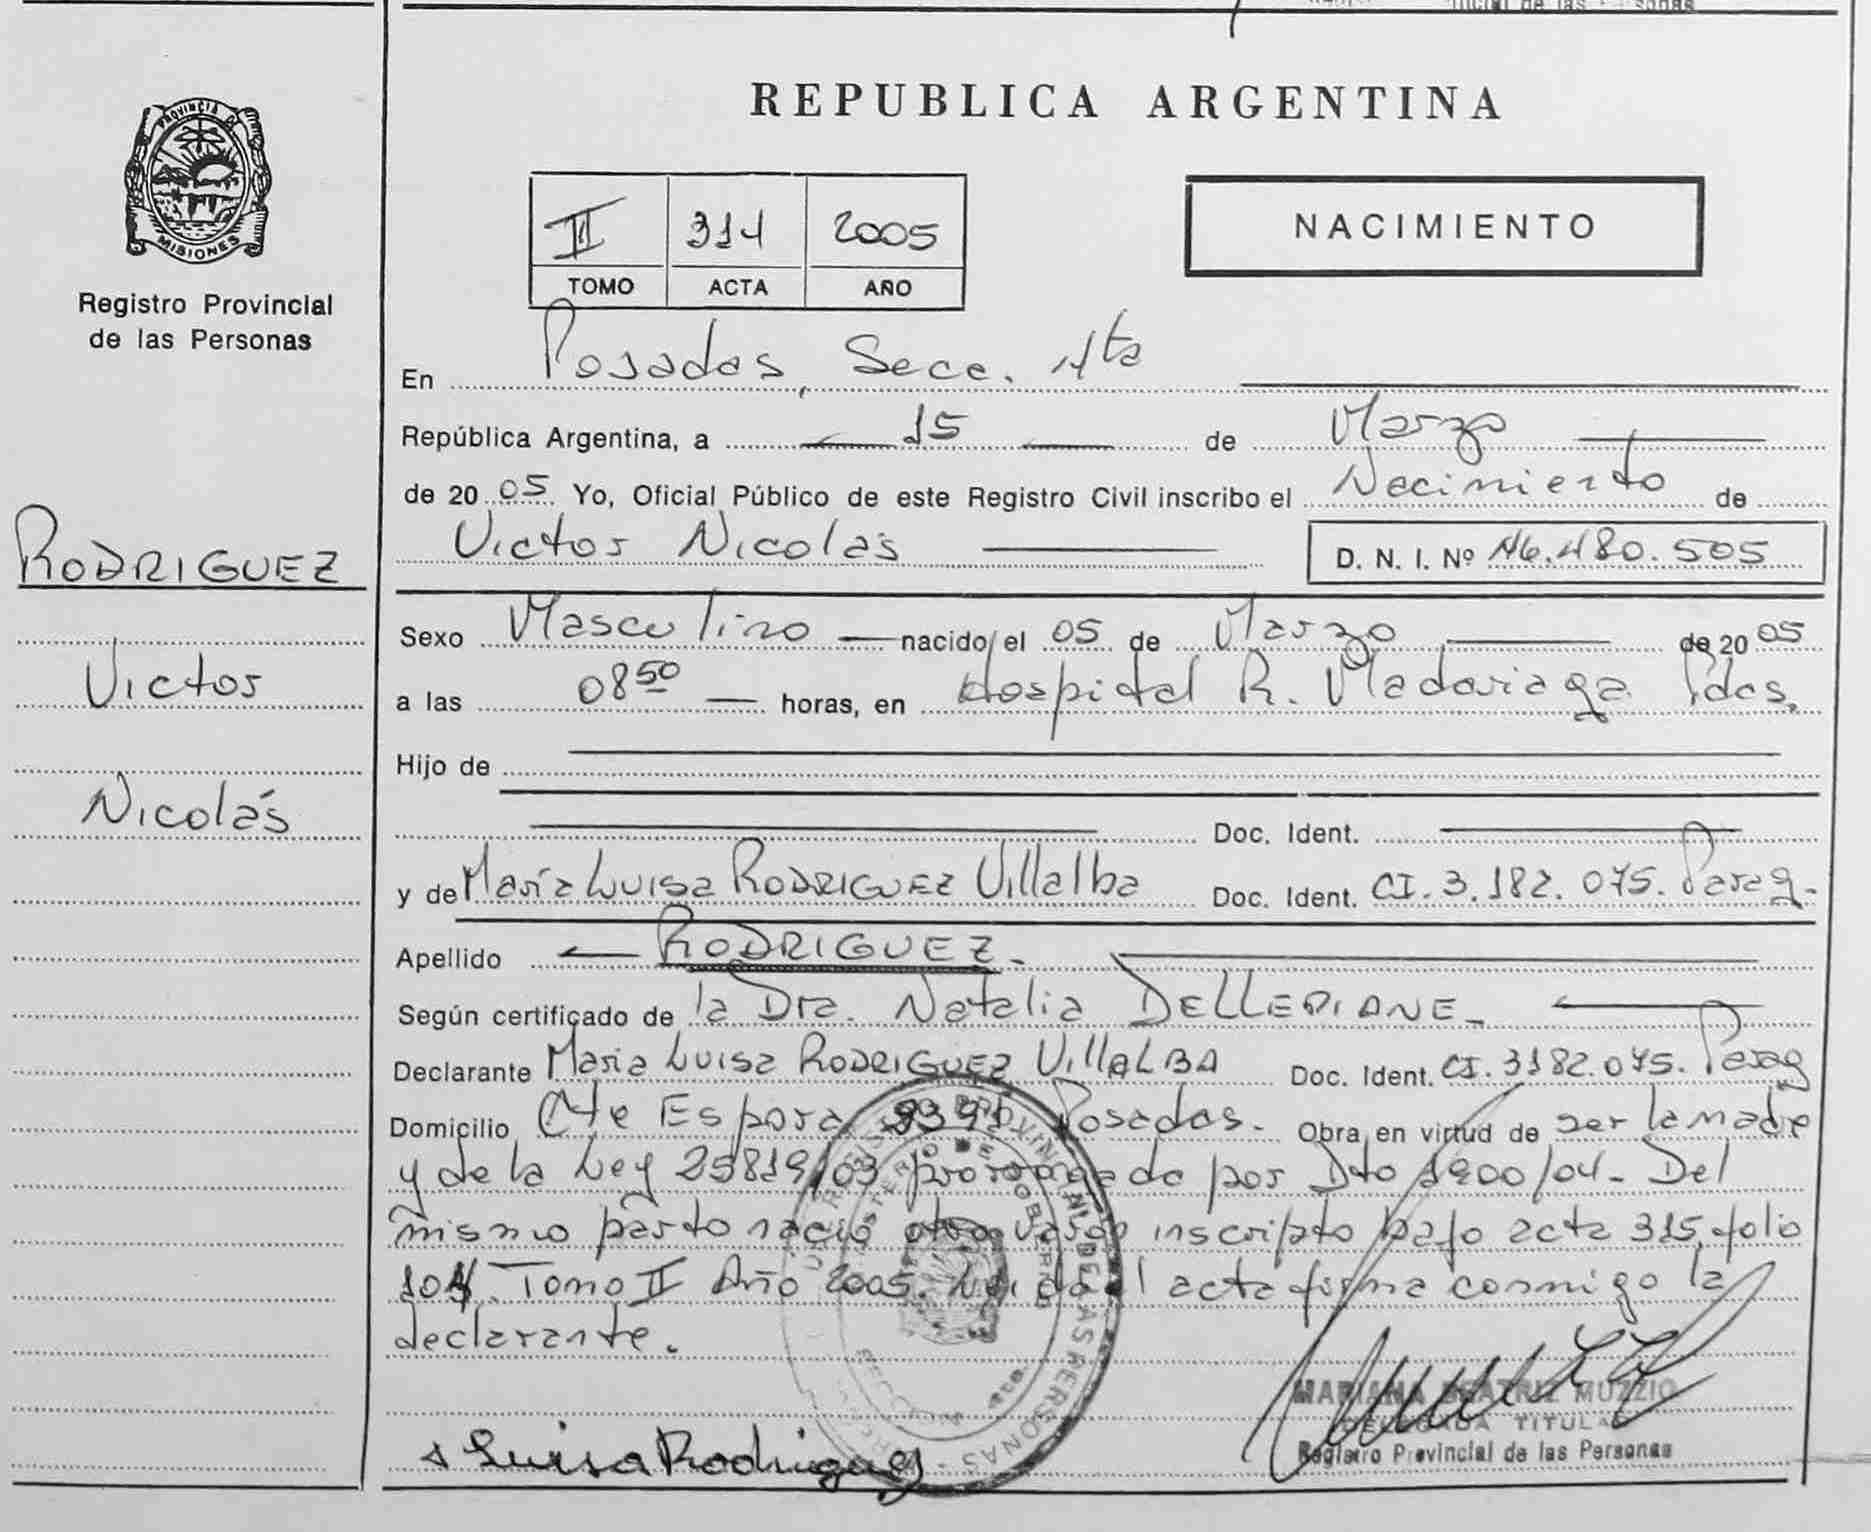 PROVINCIA DE
MISIONES
Registro Provincial
de las Personas
RODRIGUEZ
Victor
Nicolás
REPUBLICA ARGENTINA
II 314 2005
TOMO ACTA AÑO
NACIMIENTO
En Posadas, Secc. 4ta
República Argentina, a 15 de Marzo
de 20 05 Yo, Oficial Público de este Registro Civil inscribo el Nacimiento de
Victor Nicolás D. N. I. Nº 46.480.505
Sexo Masculino nacido el 05 de Marzo de 20 05
a las 08 50 horas, en Hospital R. Madariaga Pdas.
Hijo de
Doc. Ident.
y de María Luisa RODRIGUEZ Villalba Doc. Ident. CI. 3.182.075. Parag.
Apellido RODRIGUEZ.
Según certificado de la Dra. Natalia DELLEPIANE
Declarante Maria Luisa RODRIGUEZ VillALBA Doc. Ident. CI. 3182.075. Parag
Domicilio Cte Espora Posadas. Obra en virtud de ser la madre
y de la Ley 25819/03 prorrogado por Dto 1900/04. Del
mismo parto nació otro varon inscripto bajo acta 315, folio
Tomo II Año 2005. Leida el acta firma conmigo la
declarante.
Luisa Rodriguez
MARIANA BEATRIZ MUZZIO
DELEGADA TITULAR
Registro Provincial de las Personas